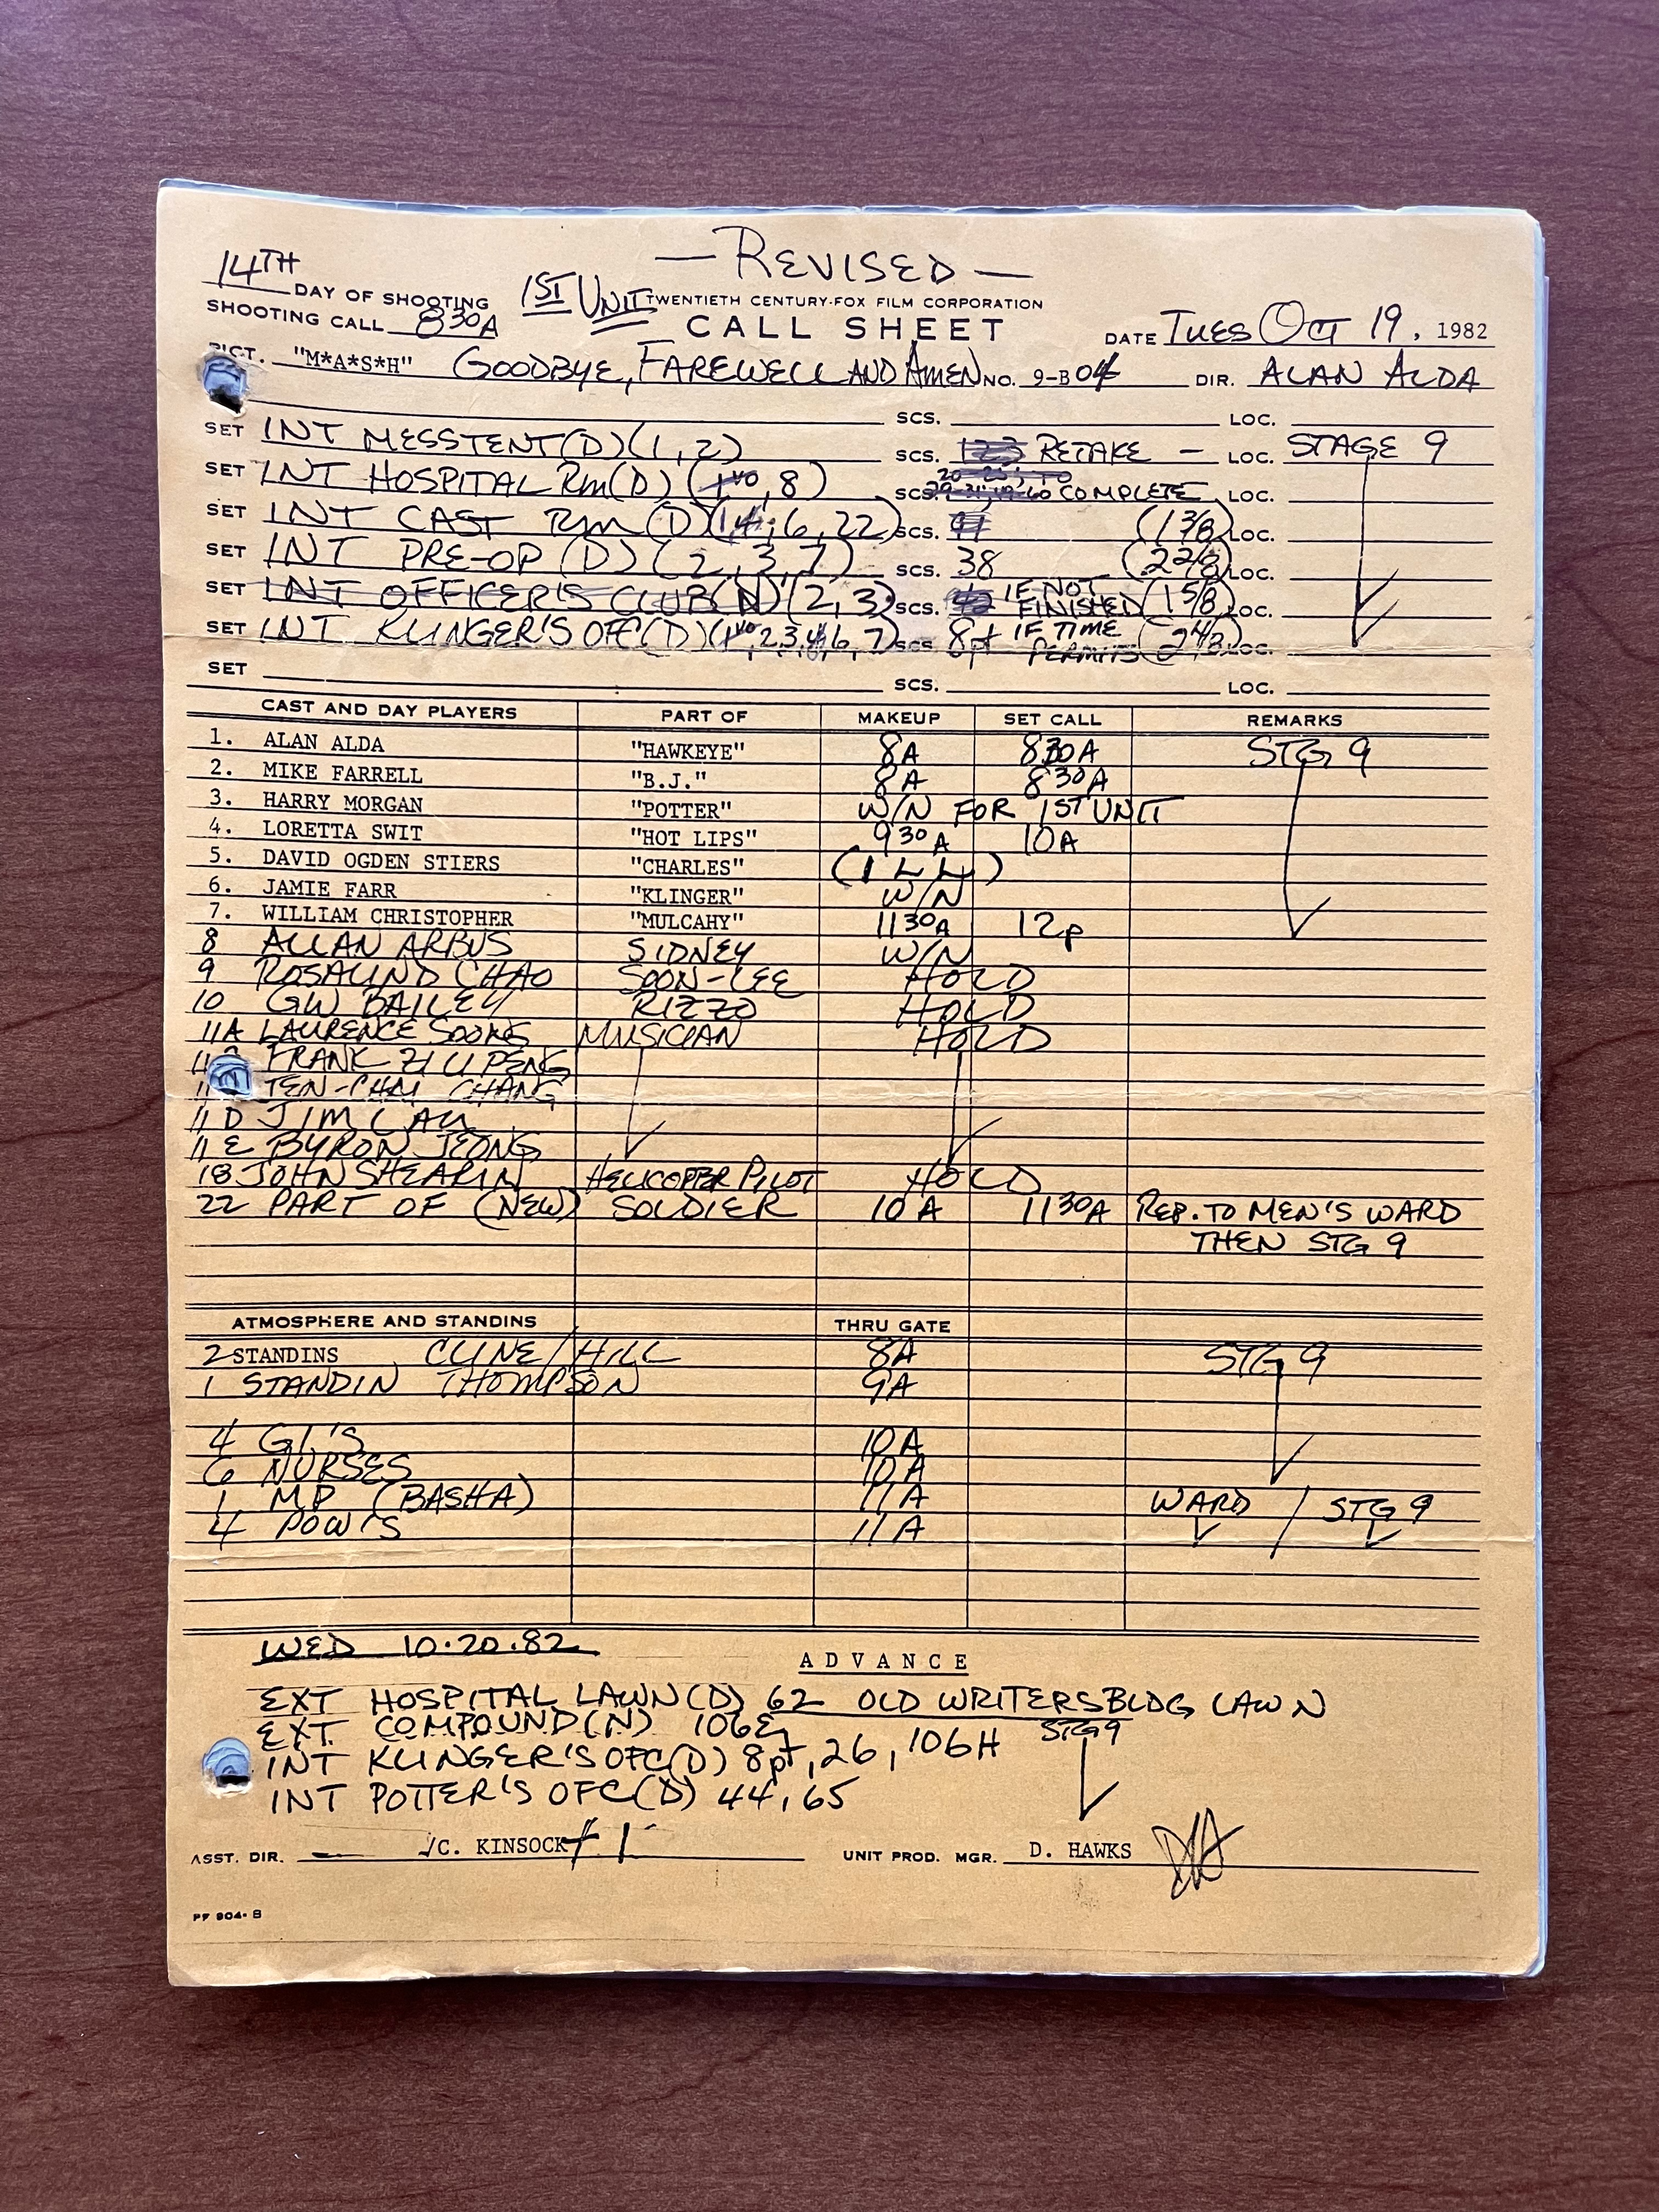 — REVISED —
14TH DAY OF SHOOTING 1ST UNIT TWENTIETH CENTURY-FOX FILM CORPORATION
SHOOTING CALL 830A CALL SHEET DATE TUES OCT 19, 1982
PICT. "M*A*S*H" GOODBYE, FAREWELL AND AMEN NO. 9-B04 DIR. ALAN ALDA
SCS. LOC.
SET INT MESSTENT (D) (1, 2) SCS. RETAKE - LOC. STAGE 9
SET INT HOSPITAL Rm (D) (1vo, 8) SCS. COMPLETE LOC.
SET INT CAST Rm (D) (1, 4, 6, 22) SCS. (1 3/8) LOC.
SET INT PRE-OP (D) (2, 3, 7) SCS. 38 (2 2/8) LOC.
SET INT OFFICER'S CLUB (N) (2, 3) SCS. 42 IF NOT FINISHED (1 5/8) LOC.
SET INT KLINGER'S OFC (D) (1vo, 2, 3, 4, 6, 7) SCS 8pt IF TIME PERMITS (2 4/8) LOC.
SET SCS. LOC.
CAST AND DAY PLAYERS PART OF MAKEUP SET CALL REMARKS
1. ALAN ALDA "HAWKEYE" 8A 830A STG 9
2. MIKE FARRELL "B.J." 8A 830A
3. HARRY MORGAN "POTTER" W/N FOR 1ST UNIT
4. LORETTA SWIT "HOT LIPS" 930A 10A
5. DAVID OGDEN STIERS "CHARLES" (ILL)
6. JAMIE FARR "KLINGER" W/N
7. WILLIAM CHRISTOPHER "MULCAHY" 1130A 12p
8 ALLAN ARBUS SIDNEY W/N
9 ROSALIND CHAO SOON-LEE HOLD
10 GW BAILEY RIZZO HOLD
11A LAURENCE SOONG MUSICIAN HOLD
FRANK ZI LI PENG
TEN-CHAI CHANG
11 D JIM LAU
11 E BYRON JEONG
18 JOHN SHEARIN HELICOPTER PILOT HOLD
22 PART OF (NEW) SOLDIER 10A 1130A REP. TO MEN'S WARD
THEN STG 9
ATMOSPHERE AND STANDINS THRU GATE
2 STANDINS CLINE/HILL 8A STG 9
1 STANDIN THOMPSON 9A
4 G.I.'S 10A
6 NURSES 10A
1 MP (BASHA) 11A WARD / STG 9
4 POW'S 11A
WED 10.20.82
ADVANCE
EXT HOSPITAL LAWN (D) 62 OLD WRITERS BLDG LAWN
EXT COMPOUND (N) 106E STG 9
INT KLINGER'S OFC (D) 8pt, 26, 106H
INT POTTER'S OFC (D) 44, 65
ASST. DIR. /C. KINSOCK + 1 UNIT PROD. MGR. D. HAWKS
PF 904-B